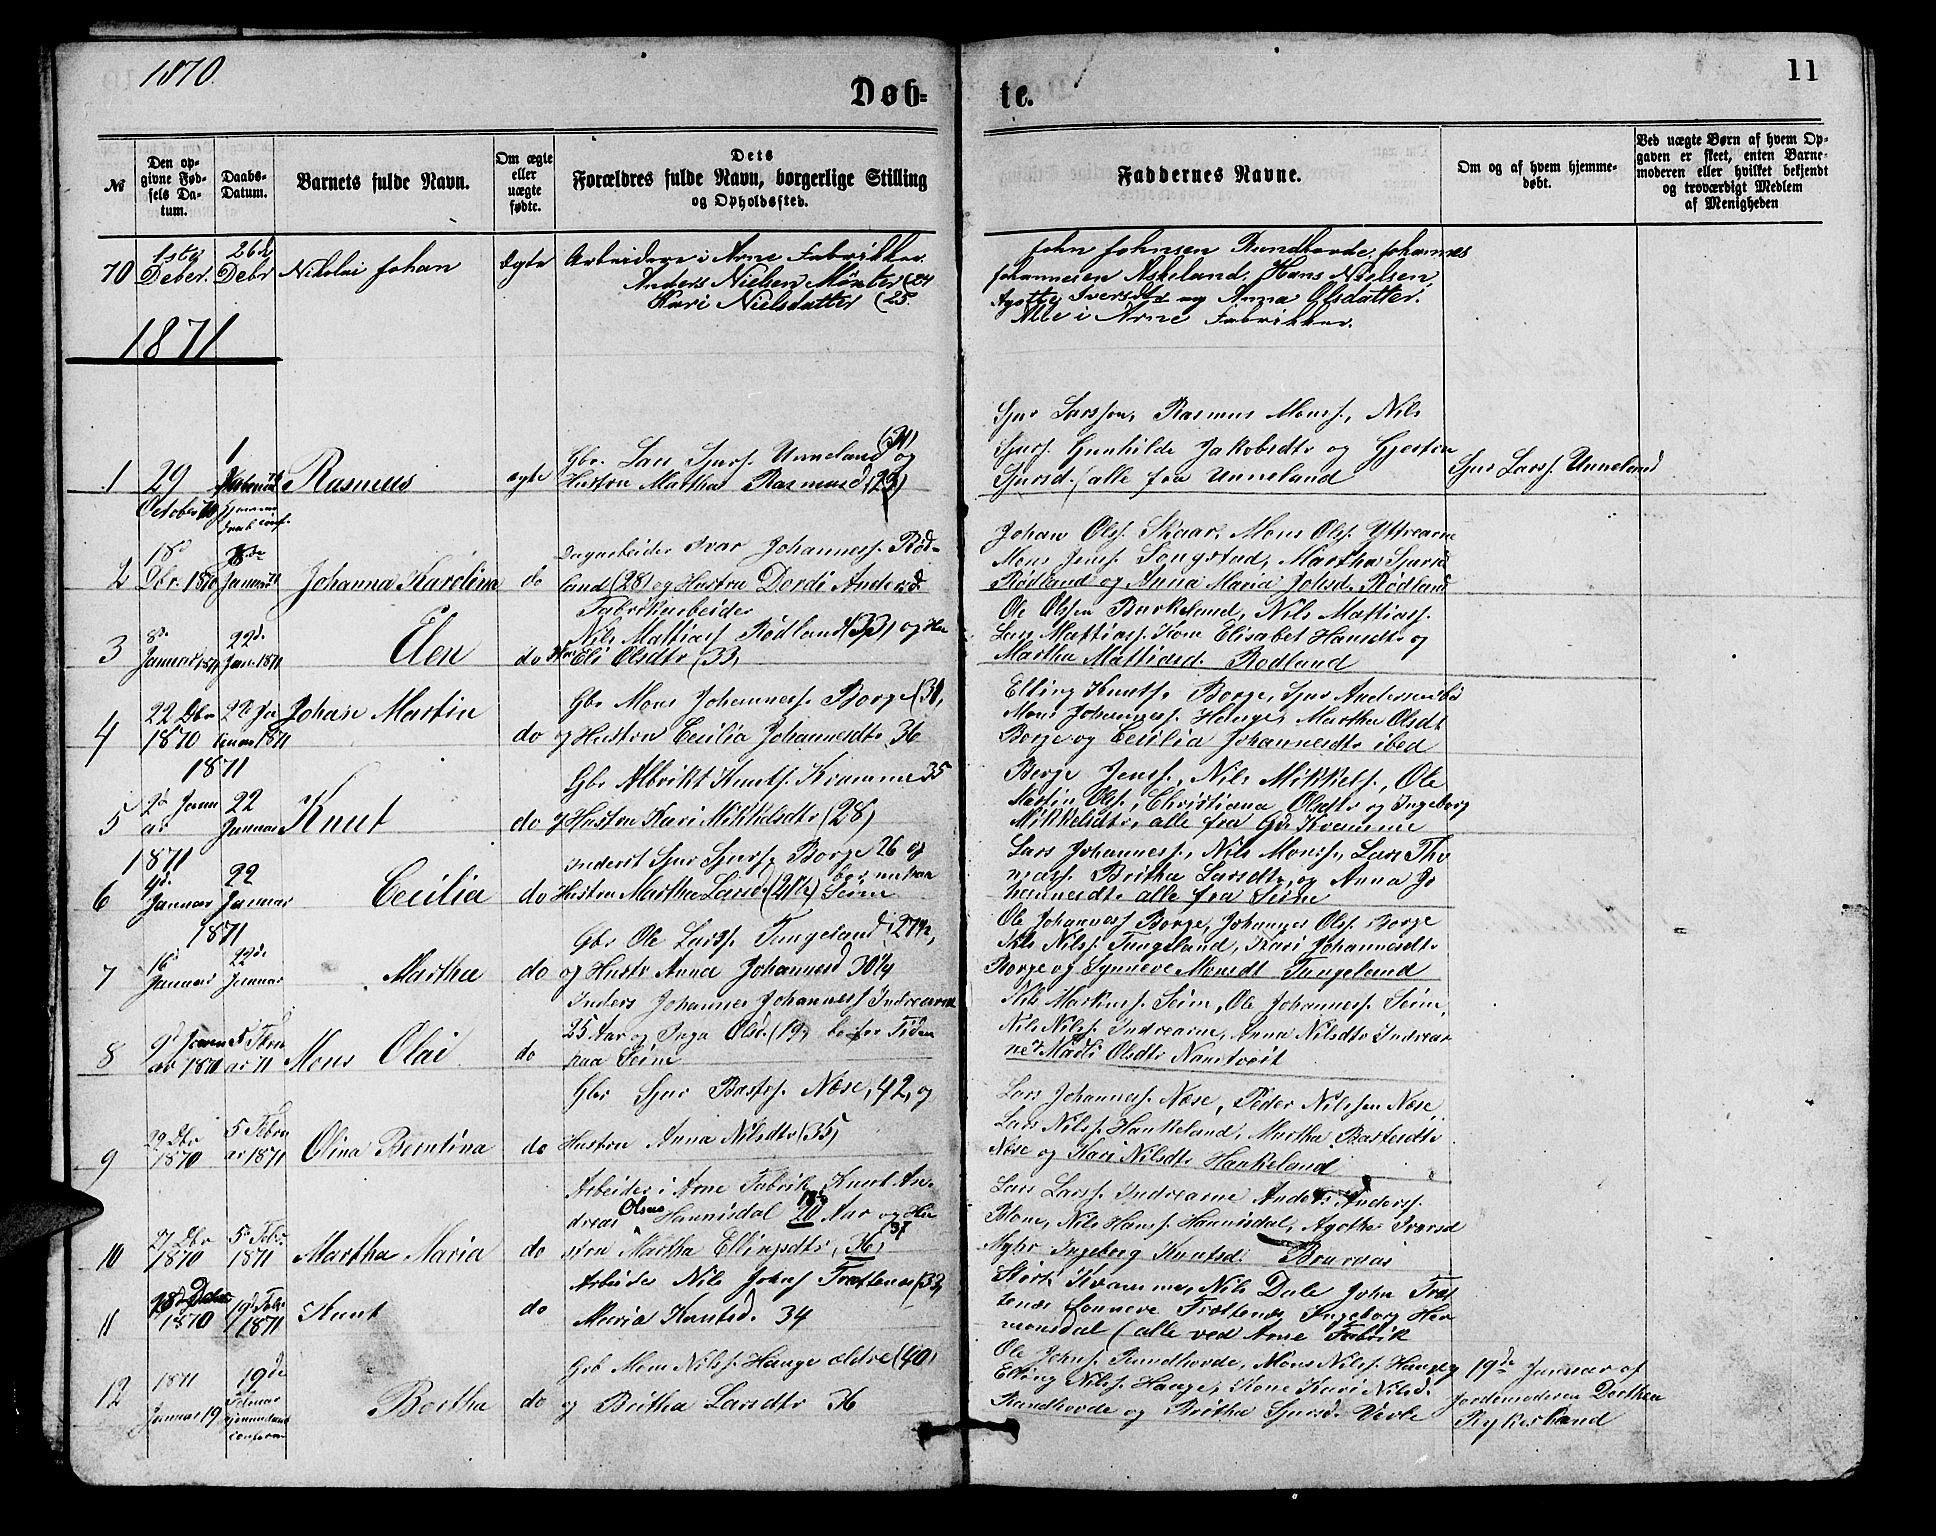 1870.
11
Døb=
te.
№
Den op-
givne Fød-
sels Da-
tum.
Daabs-
Datum.
Barnets fulde Navn.
Om ægte
eller
uægte
fødte.
Dets
Forældres fulde Navn, borgerlige Stilling
og Opholdssted.
Faddernes Navne.
Om og af hvem hjemme-
døbt.
Ved uægte Børn af hvem Op-
gaven er skeet, enten Barne-
moderen eller hvilket bekjendt
og troværdigt Medlem
af Menigheden
70
Deber.
26d
Debr
Nikolai Johan
Ægte
Arbeidere i Arne Fabrikker.
Anders Nielsen Mønter (24
Kari Nielsdatter (25.
John Johnsen Rundhovde, Johannes
Johannesen Askeland, Hans Nielsen,
Agothe Iversdtr og Anna Olsdatter.
Alle i Arne Fabrikker.
1871
1
29
October 70
1
Rasmus
ægte
Gbr. Lars Sjurs. Unneland (31) og
Hustru Martha Rasmusd (23)
Sjur Larssen, Rasmus Monss., Nils
Sjurs. Gunhilde Jakobsdtr og Gjertru
Sjursd. (alle fra Unneland
Sjur Larss. Unneland
2
18d
Dbr. 1870
8de
Januar 71
Johanna Karolina
do
Dagarbeider Ivar Johanness. Rød-
land (28) og Hustru Dordi Andersd
Johan Olss. Skaar, Mons Olss. Yttrearne
Mons Jenss. Songstad, Martha Sjursd
Rødland og Anna Maria Johsd. Rødland
3
8de
Januar 1871
22d.
Jan. 1871
Elen
do
Fabrikarbeider
Nils Mattiass Rødland (33) og Hu
Eli Olsdtr (33,
Ole Olssen Burkeland, Nils Mattiass.
Lars Mattiass. Kone Elisabet Hansdtr og
Martha Mattiasd. Rødland
4
22 Dbr
1870
22 Ja
nuar 1871
Johan Martin
do
Gbr Mons Johanness. Borge (31,
og Hustru Cecilia Johannesdtr 36
Elling Knuts. Borge, Sjur Anderss ibd
Mons Johanness. Hauge, Martha Olsdt
Borge og Cecilia Johannesdtr ibed
5
1871
2d Janu
ar
22
Januar
Knut
do
Gbr Albrikt Knuts. Kvamme 35
og Hustru Kari Mikkelsdtr (28)
Berge Jenss., Nils Mikkels., Ole
Martin Ols., Christiana Olsdtr og Ingeborg
Mikkelsdtr, alle fra Gd. Kvamme
6
1871
9d.
Januar
22
Januar
Cecilia
do
Inderst Sjur Sjurs. Borge 26 og
Hustru Martha Larsd. (21½) Seim
Lars Johanness., Nils Monss., Lars Tho
mass. Britha Larsdtr, og Anna Jo
hannesdtr alle fra Seim
7
1871
16d
Januar
22de
Januar
Martha
do
Gbr Ole Larss. Tangeland, 27½,
og Hustr Anna Johannesd 30¼
Ole Johanness Borge, Johannes Olss. Borge
Nils Nilss. Tangeland, Kari Johannesdtr
Borge og Synneve Monsdt Tangeland
8
9d Janu
ar 1871
5 Febru
ar 71
Mons Olai
do
Inders Johannes Johanness Indrearne
25 Aar og Inga Olsd. (19,
paa Seim
Nils Markuss. Seim, Ole Johanness. Seim,
Nils Nilss. Indrearne, Anna Nilsdtr Indrear
ne og Madli Olsdtr Namtvedt
9
29 Dbr
1870
5 Febru
ar 1871
Olina Berntina
do
Gbr Sjur Bastss. Næse, 42, og
Hustru Anna Nilsdtr (35)
Lars Johanness. Næse, Peder Nilssen Næse,
Lars Nilss. Haukeland, Martha Bastesdtr
Næse og Kari Nilsdtr Haukeland
10
27 Dbr
1870
5 Febr.
1871
Martha Maria
do
Arbeider i Arne Fabrik Knut An-
dreas Olsen Hannisdal 20 Aar og Hu
stru Martha Ellingsdtr, 36, 37
Lars Larss. Indrearne Anders Anderss.
Blone, Nils Hanss. Hannisdal, Agotha Iversd
Myhr Ingeborg Knutsd. Bruraas
11
28d Debr
1870
19d Feb.
1871
Knut
do
Arbeider Nils Johns Trættenes (33,
Maria Knutsd. 34
Størk Kvamme, Nils Dale John Træt
tenes Synneve Trættenes Ingeborg Her
mansdal (alle ved Arne Fabrik
12
1871
Januar 19
19de
Februar
Bertha
do
Gbr Mons Nilss. Hauge ældre (40,
og Britha Larsdtr 36
Ole Johns. Rundhovde, Mons Nilss. Hauge
Elling Nilss. Hauge, Kone Kari Nilsd.
Randhovde og Britha Sjursd. Verle
19de Januar af
Jordemoderen Dorthea
Rykesland